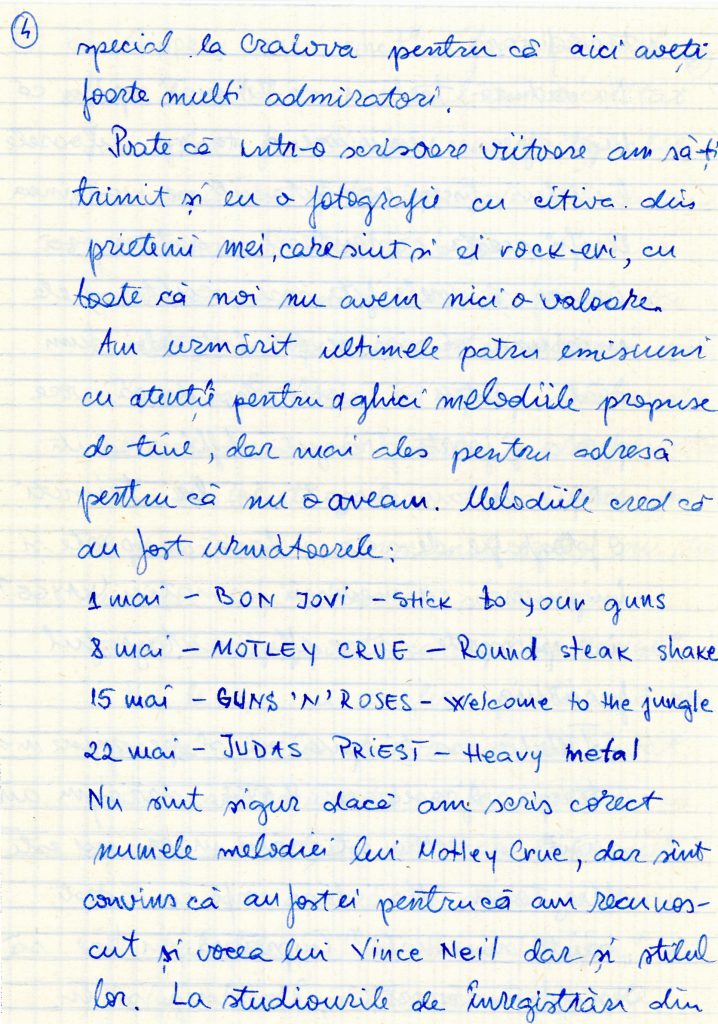 4
special la Craiova pentru că aici aveți
foarte multi admiratori.
Poate că într-o scrisoare viitoare am să-ți
trimit și eu o fotografie cu citiva din
prietenii mei, care sint si ei rock-eri, cu
toate că noi nu avem nici o valoare.
Am urmărit ultimele patru emisiuni
cu atenție pentru a ghici melodiile propuse
de tine, dar mai ales pentru adresă
pentru că nu o aveam. Melodiile cred că
au fost următoarele:
1 mai - BON JOVI - Stick to your guns
8 mai - MOTLEY CRUE - Round steak shake
15 mai - GUNS 'N' ROSES - Welcome to the jungle
22 mai - JUDAS PRIEST - Heavy metal
Nu sint sigur dacă am scris corect
numele melodiei lui Motley Crue, dar sint
convins că au fost ei pentru că am recunos-
cut și vocea lui Vince Neil dar și stilul
lor. La studiourile de înregistrări din